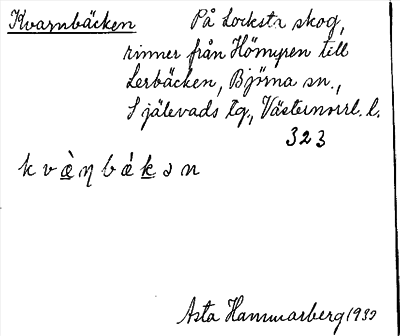 Kvarnbäcken På Locksta skog,
rinner från Hömyren till
Lerbäcken, Björna sn.,
Själevads tg., Västernorrl. l.
323
kvæ̀ɳbǽkən
Asta Hammarberg 1930